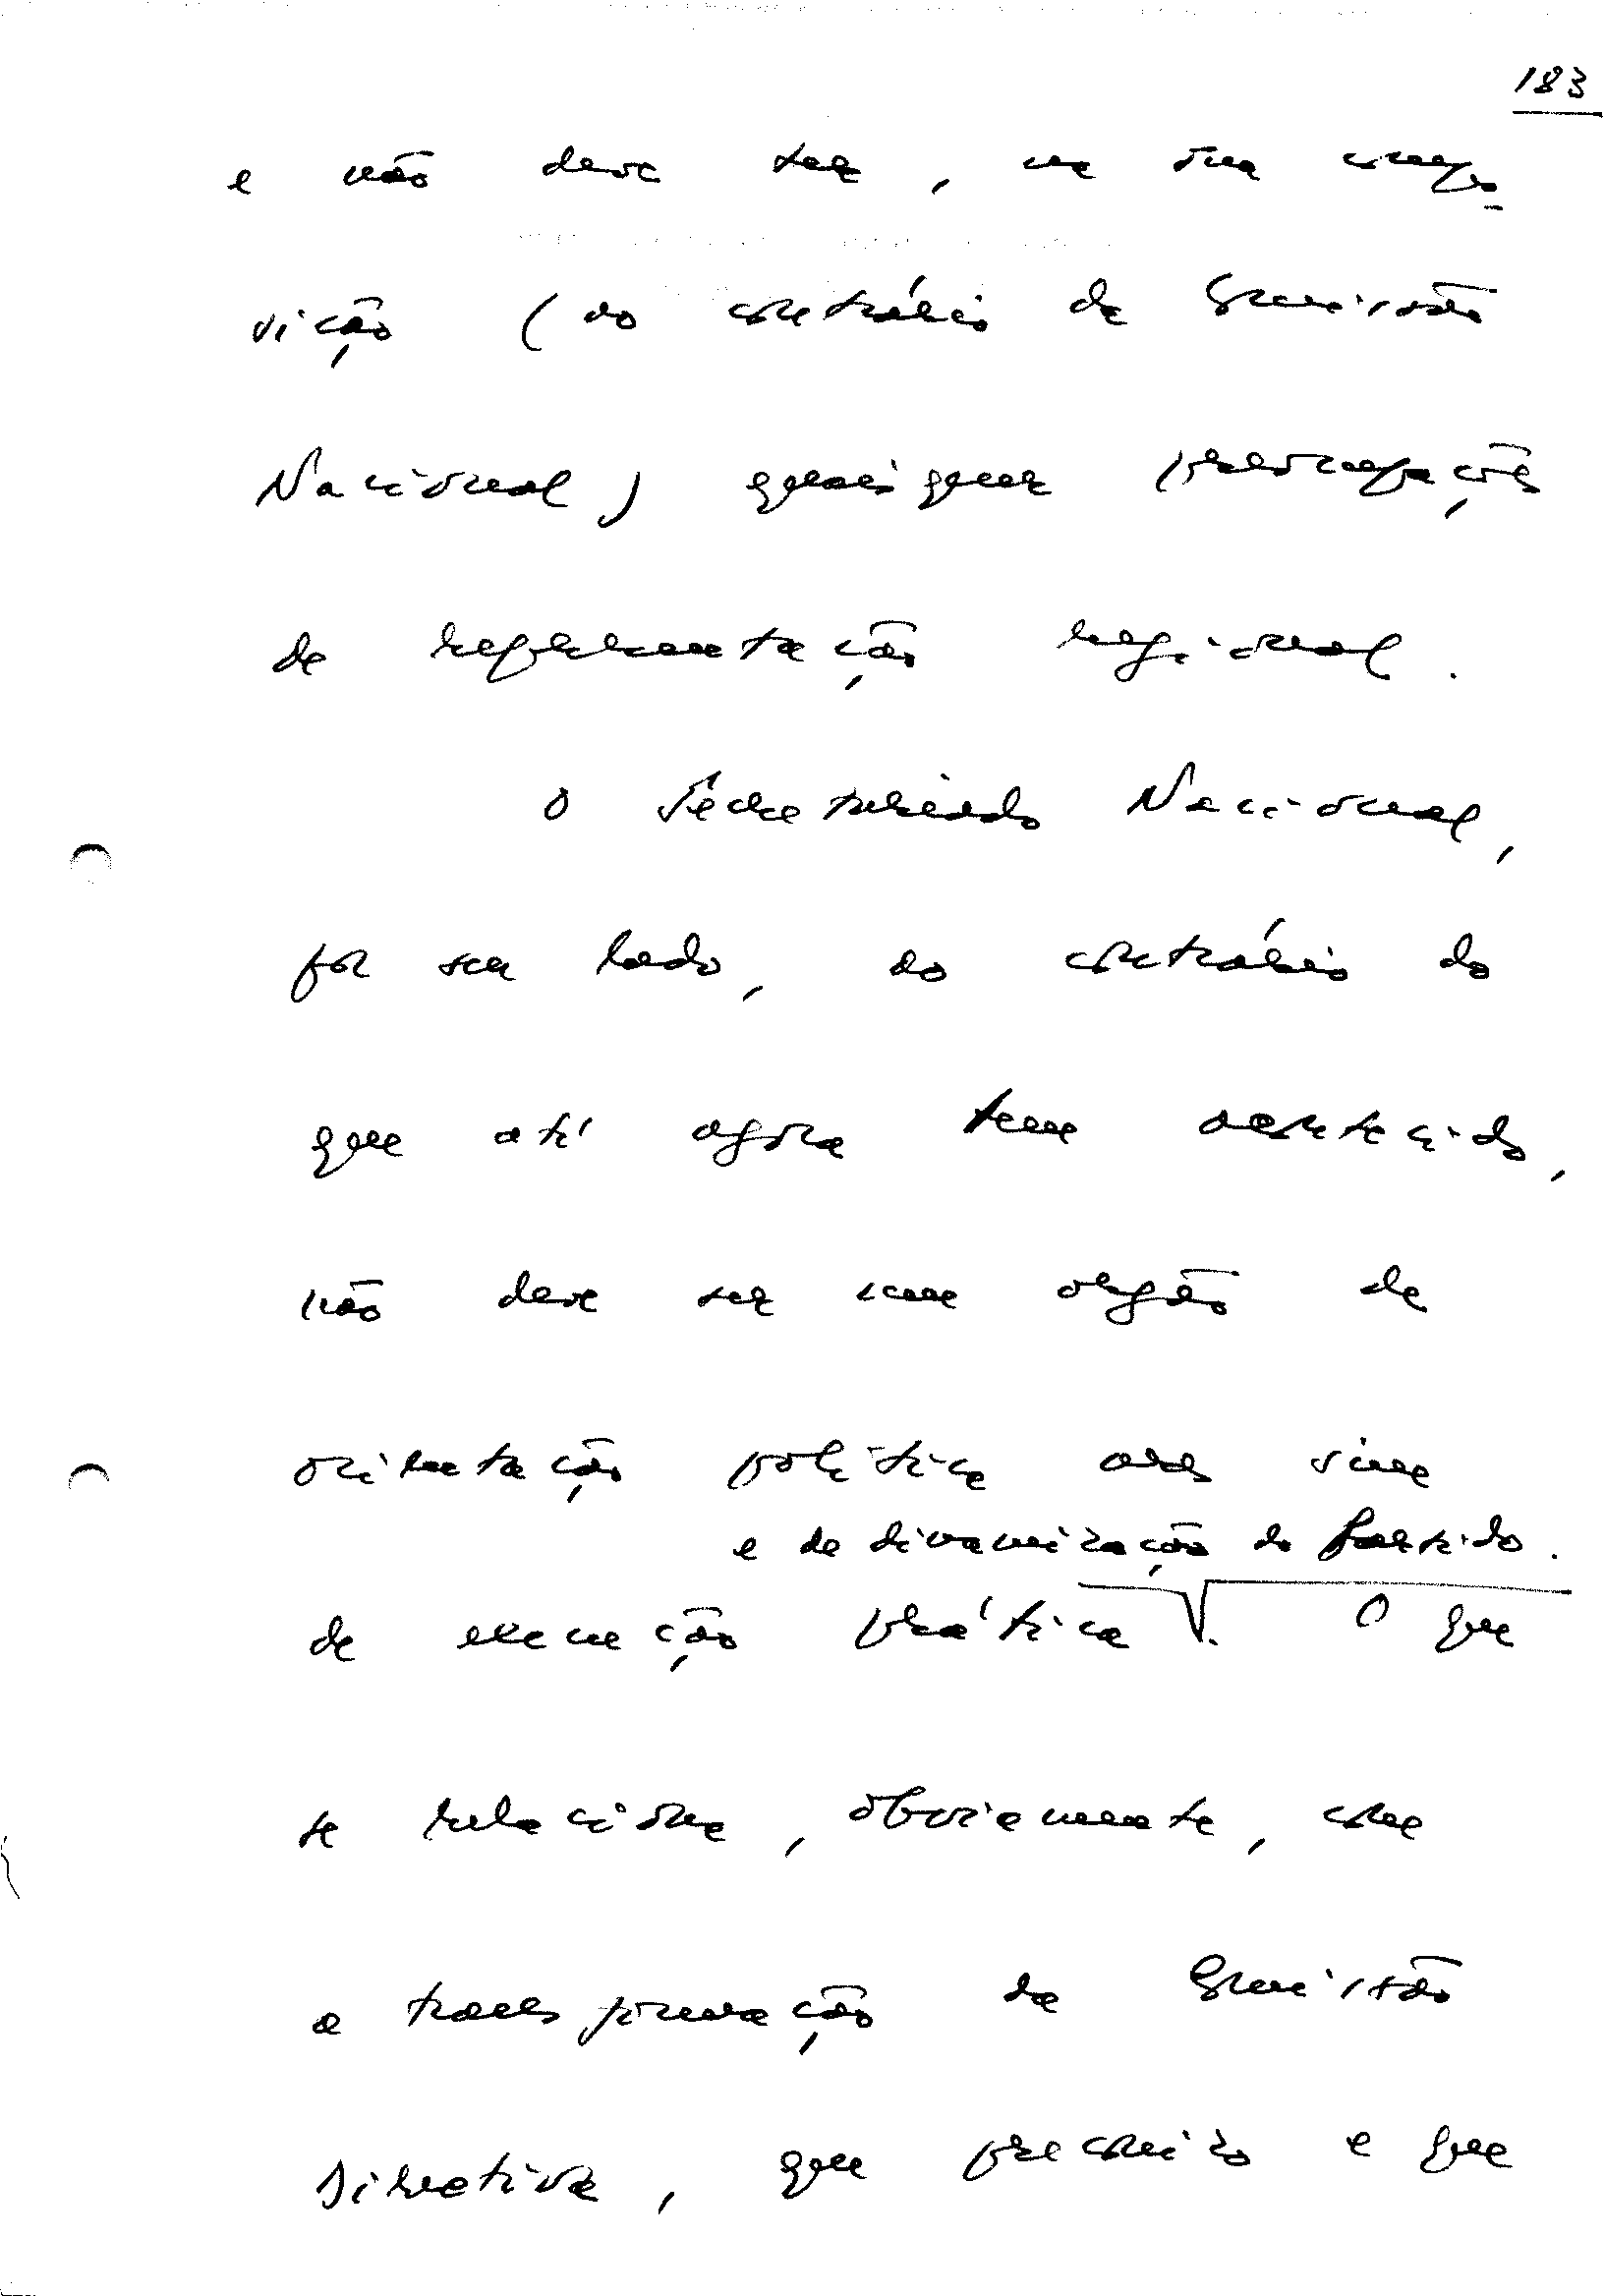 183
e não deve ter, na sua compo
sição (ao contrário da Comissão
Nacional) quaisquer preocupações
de representação regional.
O Secretariado Nacional,
por seu lado, ao contrário do
que até agora tem acontecido,
não deve ser um orgão de
orientação política mas sim
e de dinamização do Partido.
de execução prática. O que
se relaciona, obviamente, com
a transformação da Comissão
Directiva, que preconizo e que